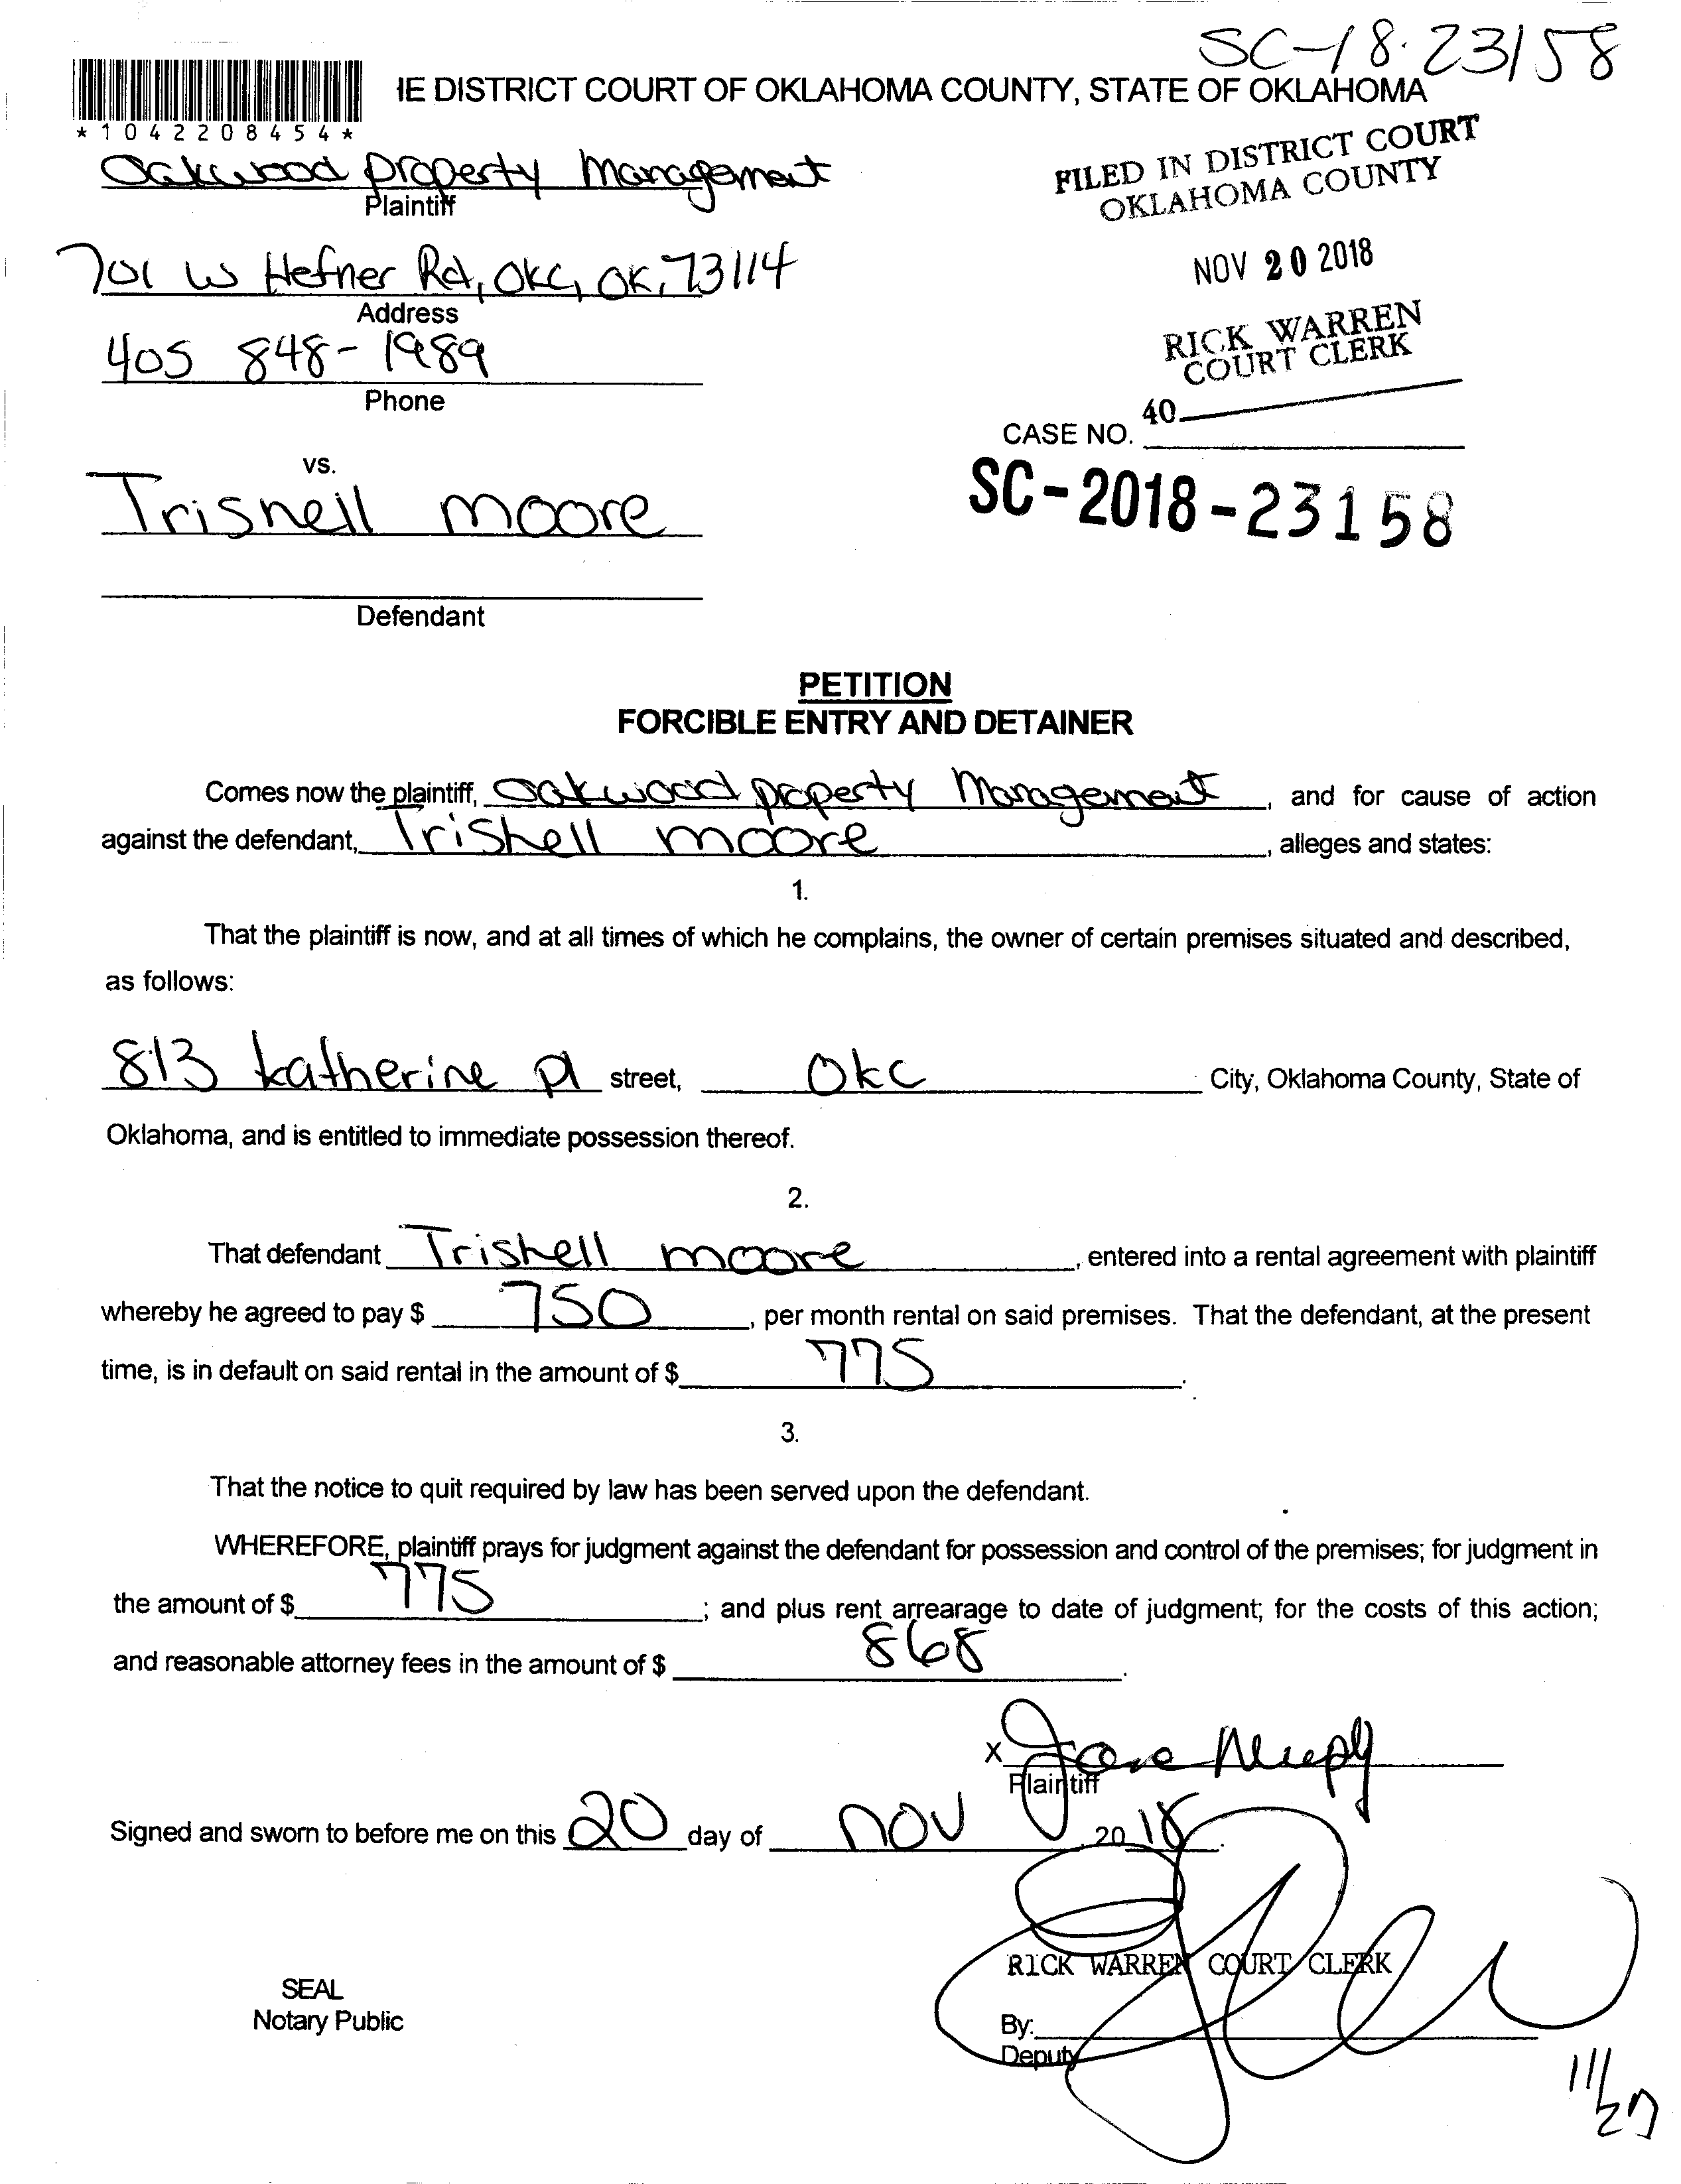 SC-18-23158
IE DISTRICT COURT OF OKLAHOMA COUNTY, STATE OF OKLAHOMA
*1042208454*
Oakwood property Management
Plaintiff
FILED IN DISTRICT COURT
OKLAHOMA COUNTY
701 W Hefner Rd, OKC, OK, 73114
Address
NOV 20 2018
405 848-1989
Phone
RICK WARREN
COURT CLERK
40
CASE NO.
SC-2018-23158
vs.
Trishell moore
Defendant
PETITION
FORCIBLE ENTRY AND DETAINER
Comes now the plaintiff, Oakwood property Management, and for cause of action
against the defendant, Trishell moore, alleges and states:
1.
That the plaintiff is now, and at all times of which he complains, the owner of certain premises situated and described,
as follows:
813 katherine pl street, OKC City, Oklahoma County, State of
Oklahoma, and is entitled to immediate possession thereof.
2.
That defendant Trishell moore, entered into a rental agreement with plaintiff
whereby he agreed to pay $ 750, per month rental on said premises. That the defendant, at the present
time, is in default on said rental in the amount of $ 775.
3.
That the notice to quit required by law has been served upon the defendant.
WHEREFORE, plaintiff prays for judgment against the defendant for possession and control of the premises; for judgment in
the amount of $ 775; and plus rent arrearage to date of judgment; for the costs of this action;
and reasonable attorney fees in the amount of $ 868.
X
Plaintiff
Signed and sworn to before me on this 20 day of nov, 2018.
RICK WARREN COURT CLERK
SEAL
Notary Public
By:
Deputy
11/27